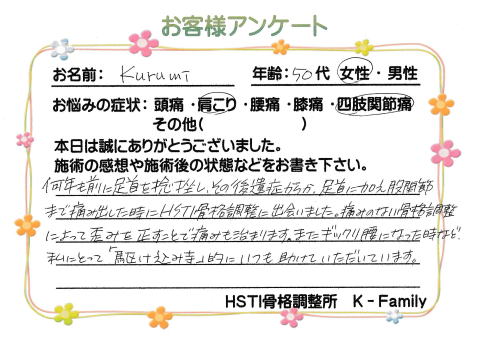 お客様アンケート
お名前: Kurumi 年齢: 50代 女性・男性
お悩みの症状: 頭痛・肩こり・腰痛・膝痛・四肢関節痛
その他( )
本日は誠にありがとうございました。
施術の感想や施術後の状態などをお書き下さい。
何年も前に足首を捻挫し、その後遺症からか、足首に加え股関節
まで痛み出した時にHSTI骨格調整に出会いました。痛みのない骨格調整
によって歪みを正すことで痛みも治まります。またギックリ腰になった時など
私にとって「駆け込み寺」的にいつも助けていただいています。
HSTI骨格調整所 K-Family